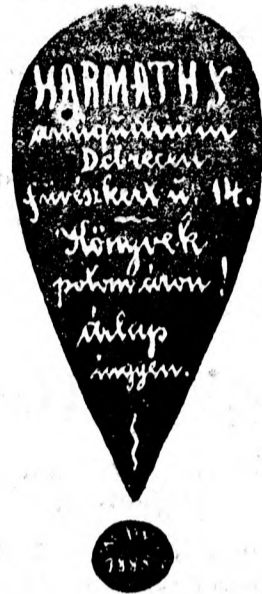 HARMATHY
antiquárium
Debrecen
füvészkert u. 14.
Könyvek
potom áron!
árlap
ingyen.